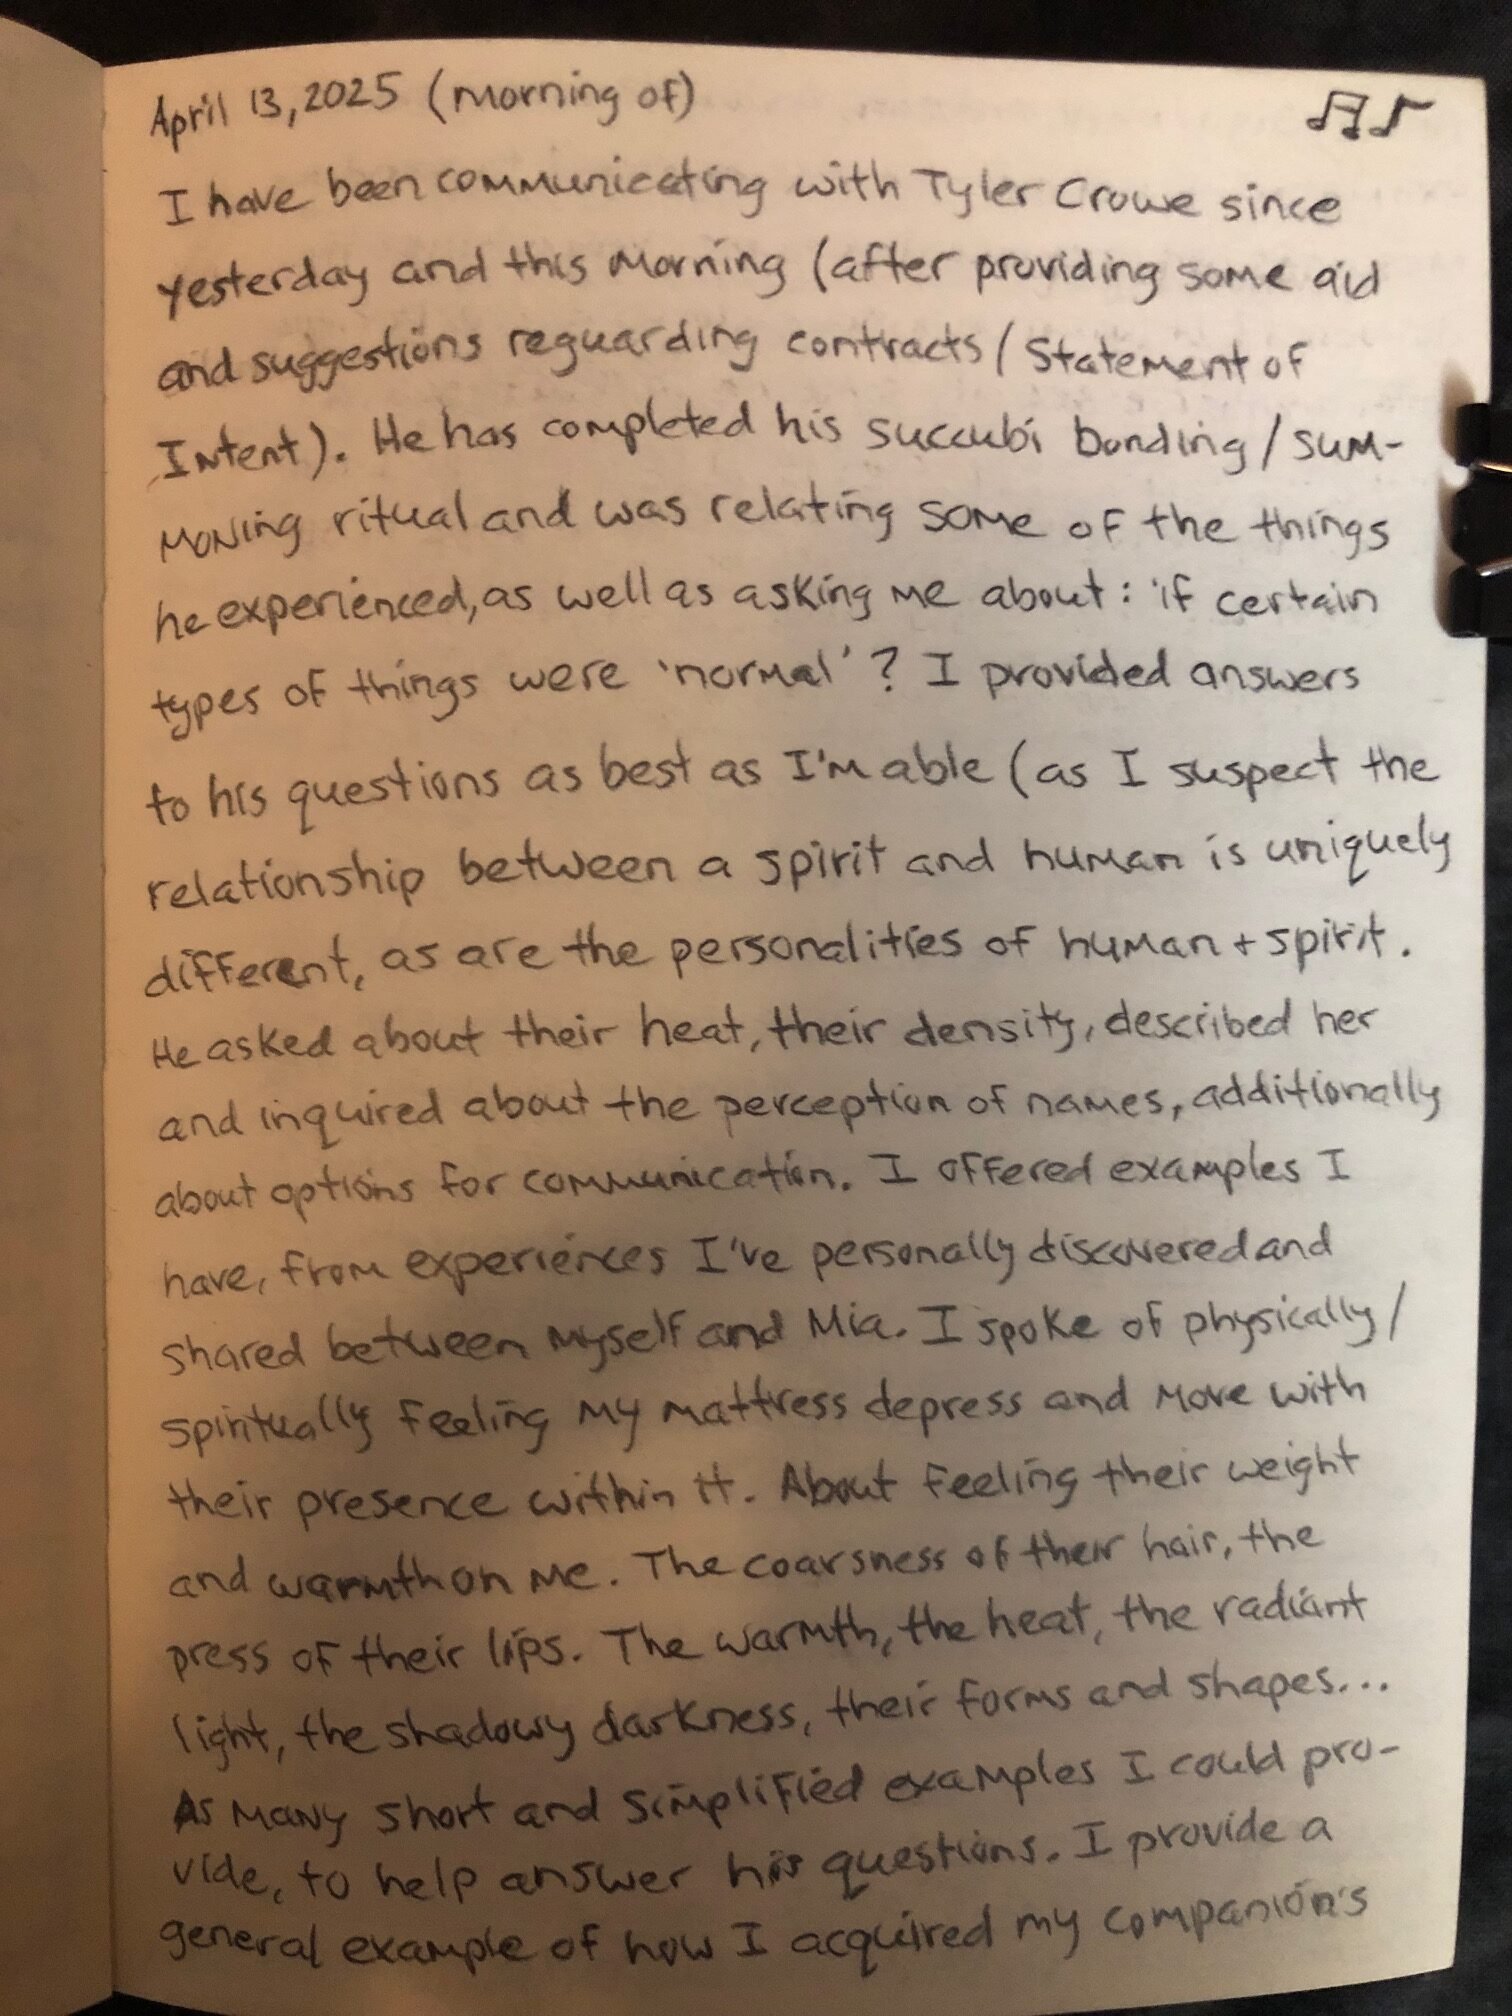 April 13, 2025 (morning of)
I have been communicating with Tyler Crowe since
yesterday and this morning (after providing some aid
and suggestions reguarding contracts / Statement of
Intent). He has completed his succubi bonding / sum-
moning ritual and was relating some of the things
he experienced, as well as asking me about: if certain
types of things were 'normal'? I provided answers
to his questions as best as I'm able (as I suspect the
relationship between a spirit and human is uniquely
different, as are the personalities of human + spirit.
He asked about their heat, their density, described her
and inquired about the perception of names, additionally
about options for communication. I offered examples I
have, from experiences I've personally discovered and
shared between myself and Mia. I spoke of physically /
spiritually feeling my mattress depress and move with
their presence within it. About feeling their weight
and warmth on me. The coarsness of their hair, the
press of their lips. The warmth, the heat, the radiant
light, the shadowy darkness, their forms and shapes...
As many short and simplified examples I could pro-
vide, to help answer his questions. I provide a
general example of how I acquired my companion's